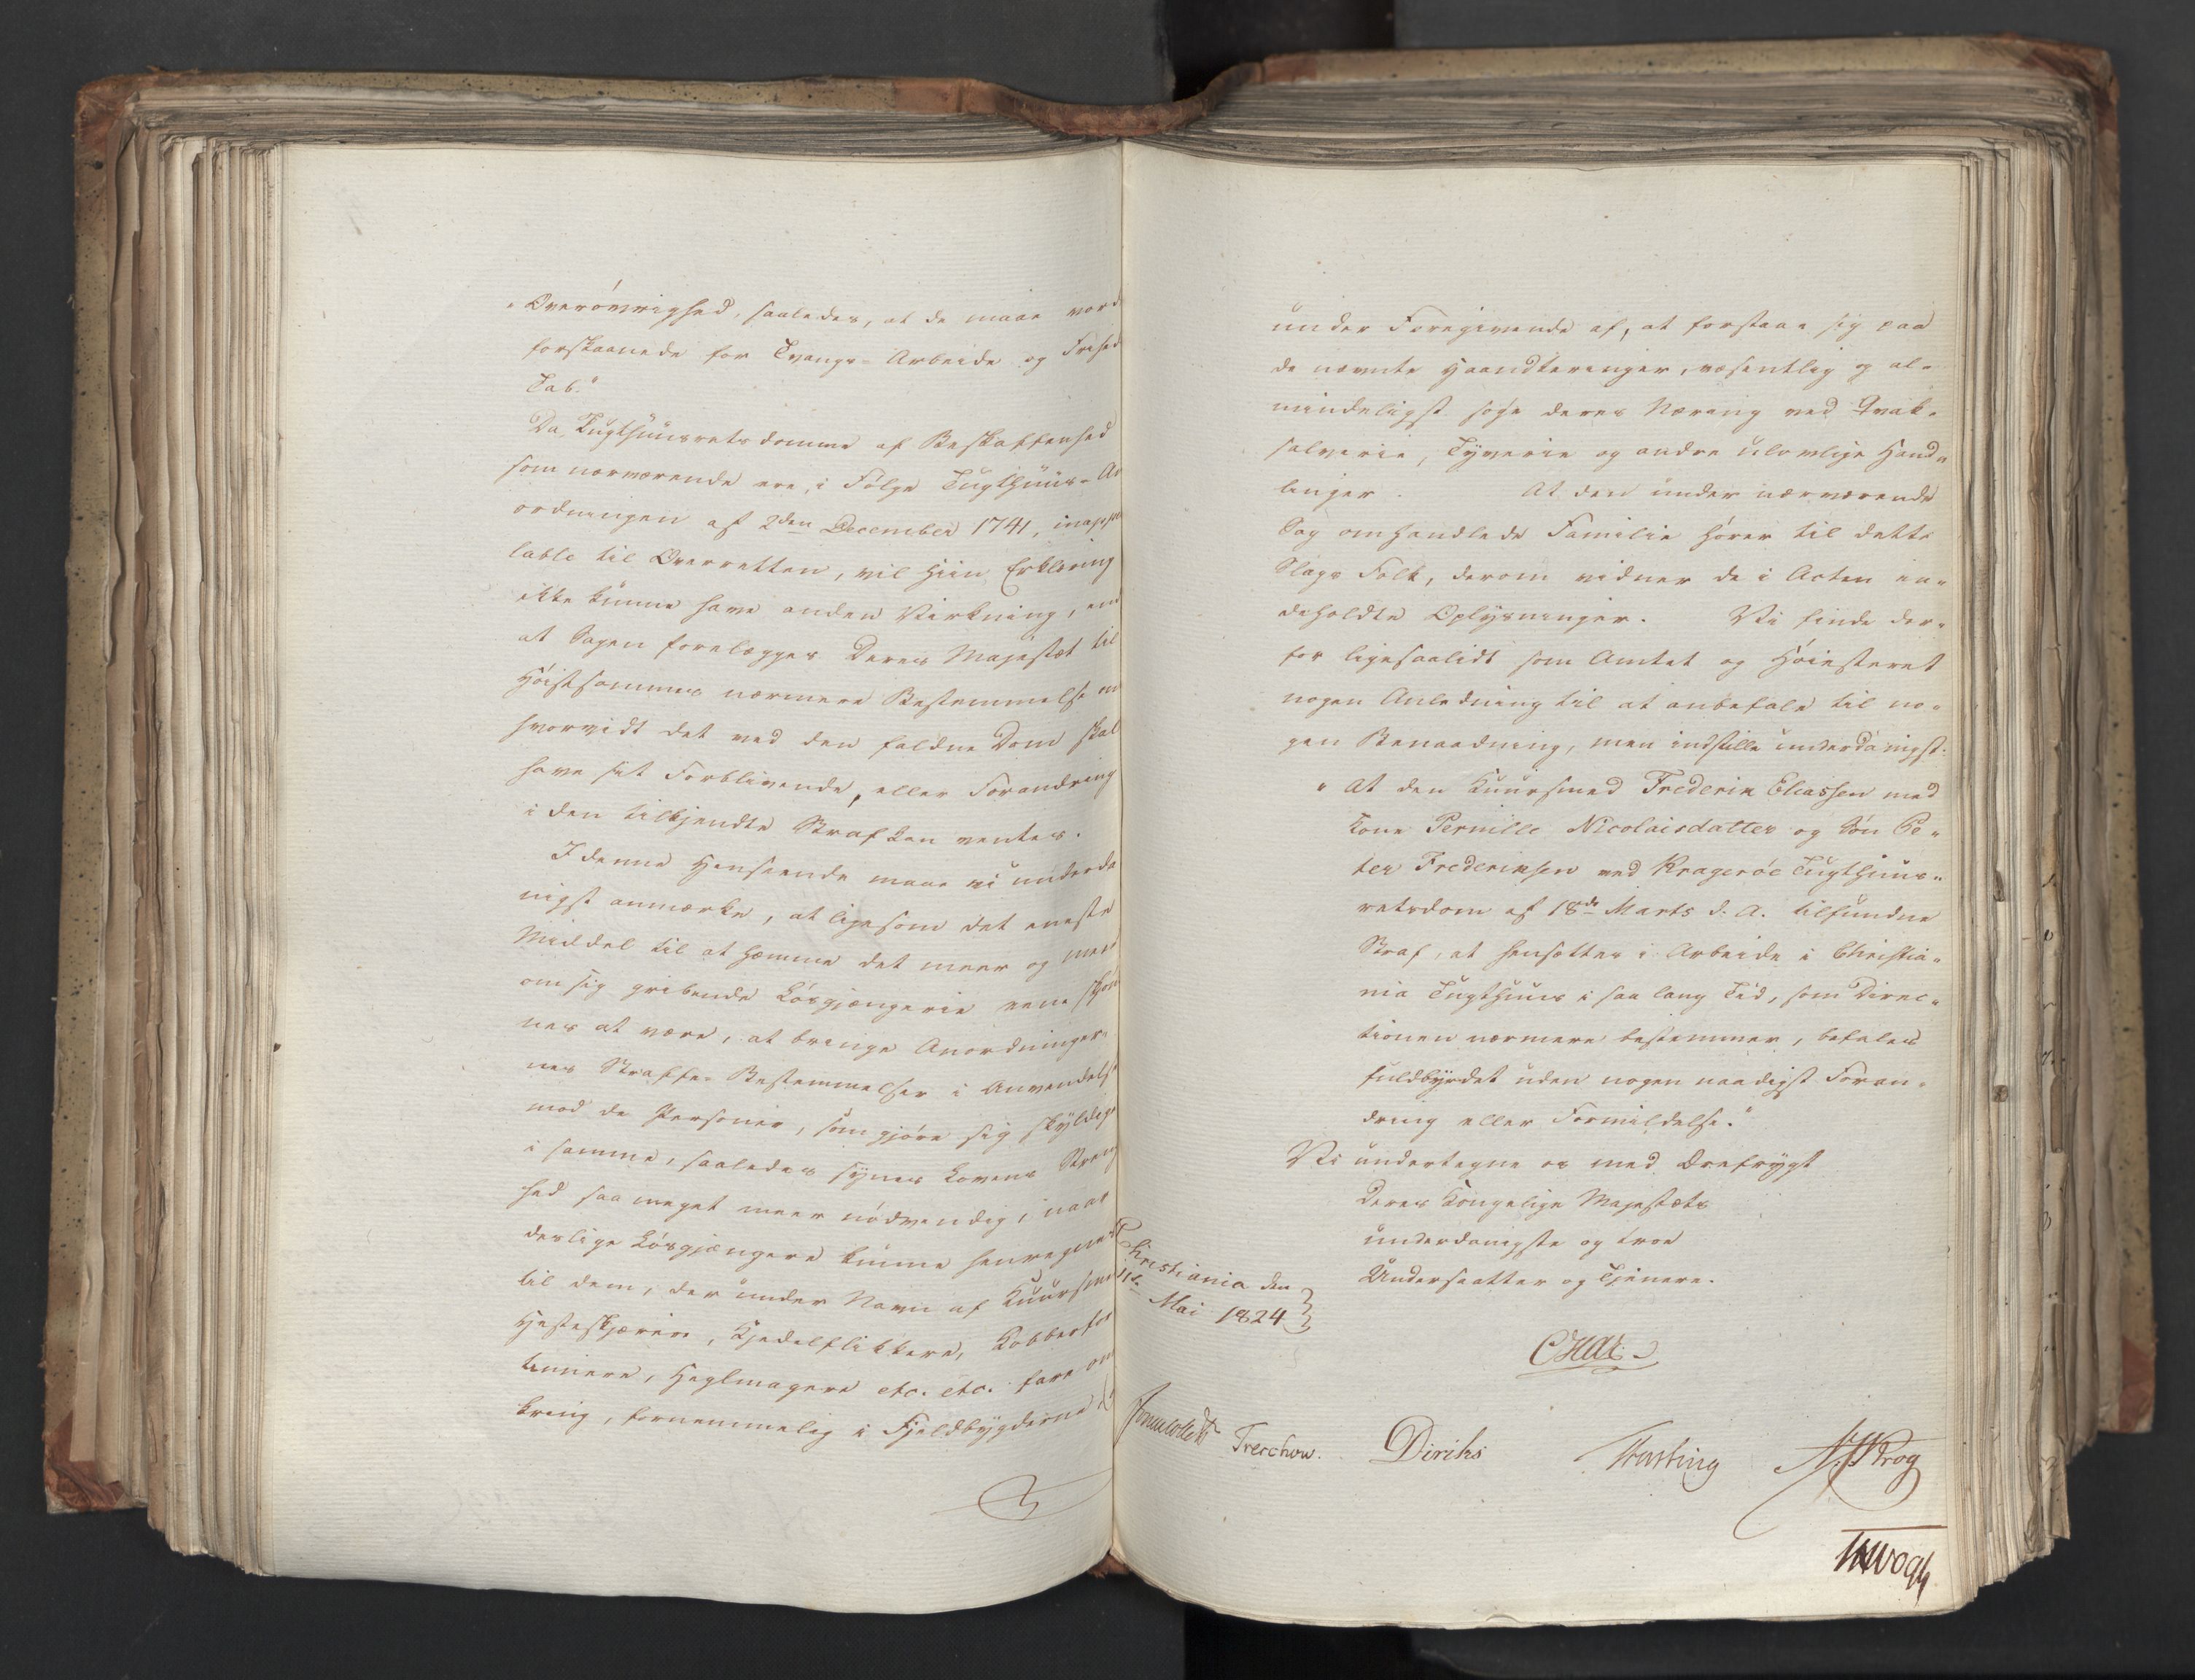 „Overøvrighed, saaledes, at de maae vord
forskaanede for Tvangs-Arbeide og Frihed
Tab.”
Da Tugthuusrets domme af Beskaffenhed
som nærværende ere, i Følge Tugthuus-An
ordningen af 2den December 1741, inappel
lable til Overretten, vil hiin Erklæring
ikke kunne have anden Virkning, end
at Sagen forelægges Deres Majestæt til
Høistsammes nærmere Bestemmelse om
hvorvidt det ved den faldne Dom skal
have sit Forblivende, eller Forandring
i den tilkjendte Straf kan ventes.
I denne Henseende maae vi underda
nigst anmærke, at ligesom det eneste
Middel til at hæmme det meer og meer
om sig gribende Løsgjængerie ene skjøn
nes at være, at bringe Anordninger-
nes Straffe-Bestemmelser i Anvendelse
mod de Personer, som gjøre sig skyldige
i samme, saaledes synes Lovens Streng
hed saa meget meer nødvendig, naar
deslige Løsgjængere kunne henregnes
til dem, der under Navn af Kuursmed
Hesteskjærere, Kjedelflikkere, Kobberfor
tinnere, Heglmagere etc. etc. fare om
kring, fornemmelig i Fjeldbygderne
under Foregivende af, at forstaae sig paa
de nævnte Haandteringer, væsentlig og al-
mindeligst søge deres Næring ved Qvak-
salverie, Tyverie og andre ulovlige Hand-
linger. At den under nærværende
Sag omhandlede Familie hører til dette
Slags Folk, derom vidner de i Acten in-
deholdte Oplysninger. Vi finde der-
for ligesaalidt som Amtet og Høiesteret
nogen Anledning til at anbefale til no-
gen Benaadning, men indstille underdanigst:
„At den Kuursmed Frederik Eliassen med
Kone Pernille Nicolaisdatter og Søn Pe-
ter Frederiksen ved Kragerøe Tugthuus-
retsdom af 18de Marts d. A. tilfundne
Straf, at hensættes i Arbeide i Christia-
nia Tugthuus i saa lang Tid, som Direc-
tionen nærmere bestemmer, befales
fuldbyrdet uden nogen naadigst Foran-
dring eller Formildelse.”
Vi undertegne os med Ærefrygt
Deres Kongelige Majestæts
underdanigste og troe
Undersaatter og Tjenere.
Christiania den
11te Mai 1824
CHae
Jonas Collett Treschow. Diriks Motzfeldt Krog
JHVogt